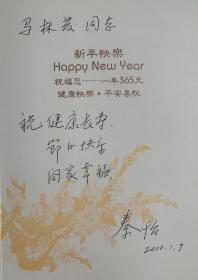 马林发同志
新年快樂
Happy New Year
祝福您……一年365天
健康快樂·平安喜悦
祝健康长寿.
節日快乐
阖家幸福
秦怡
2008.1.7